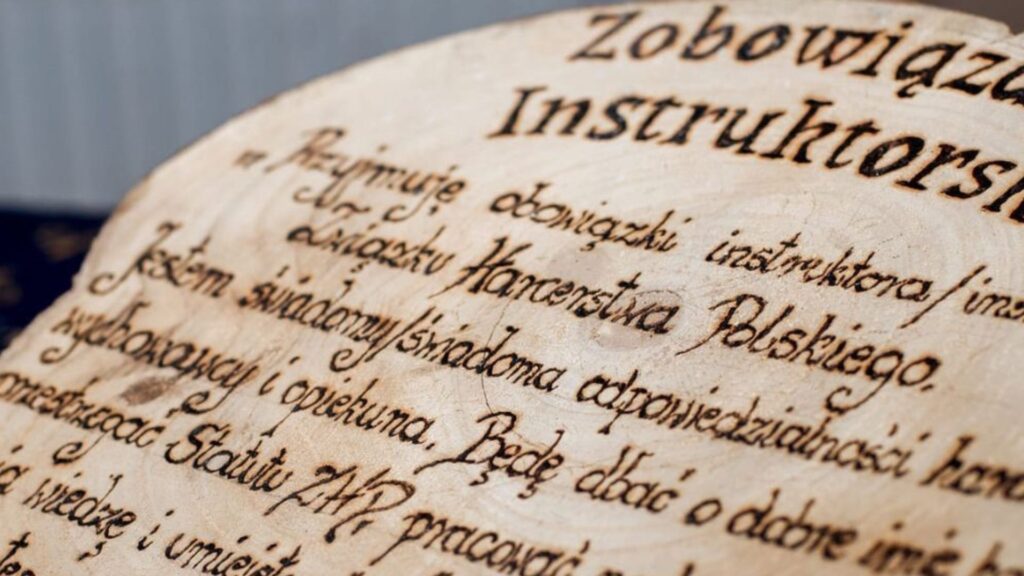 Zobowiąza
Instruktorsk
" Przyjmuję obowiązki instruktora/ins
Związku Harcerstwa Polskiego.
Jestem świadomy/świadoma odpowiedzialności harc
wychowawcy i opiekuna. Będę dbać o dobre imię ha
przestrzegać Statutu ZHP, pracować
wiedzę i umiejęt